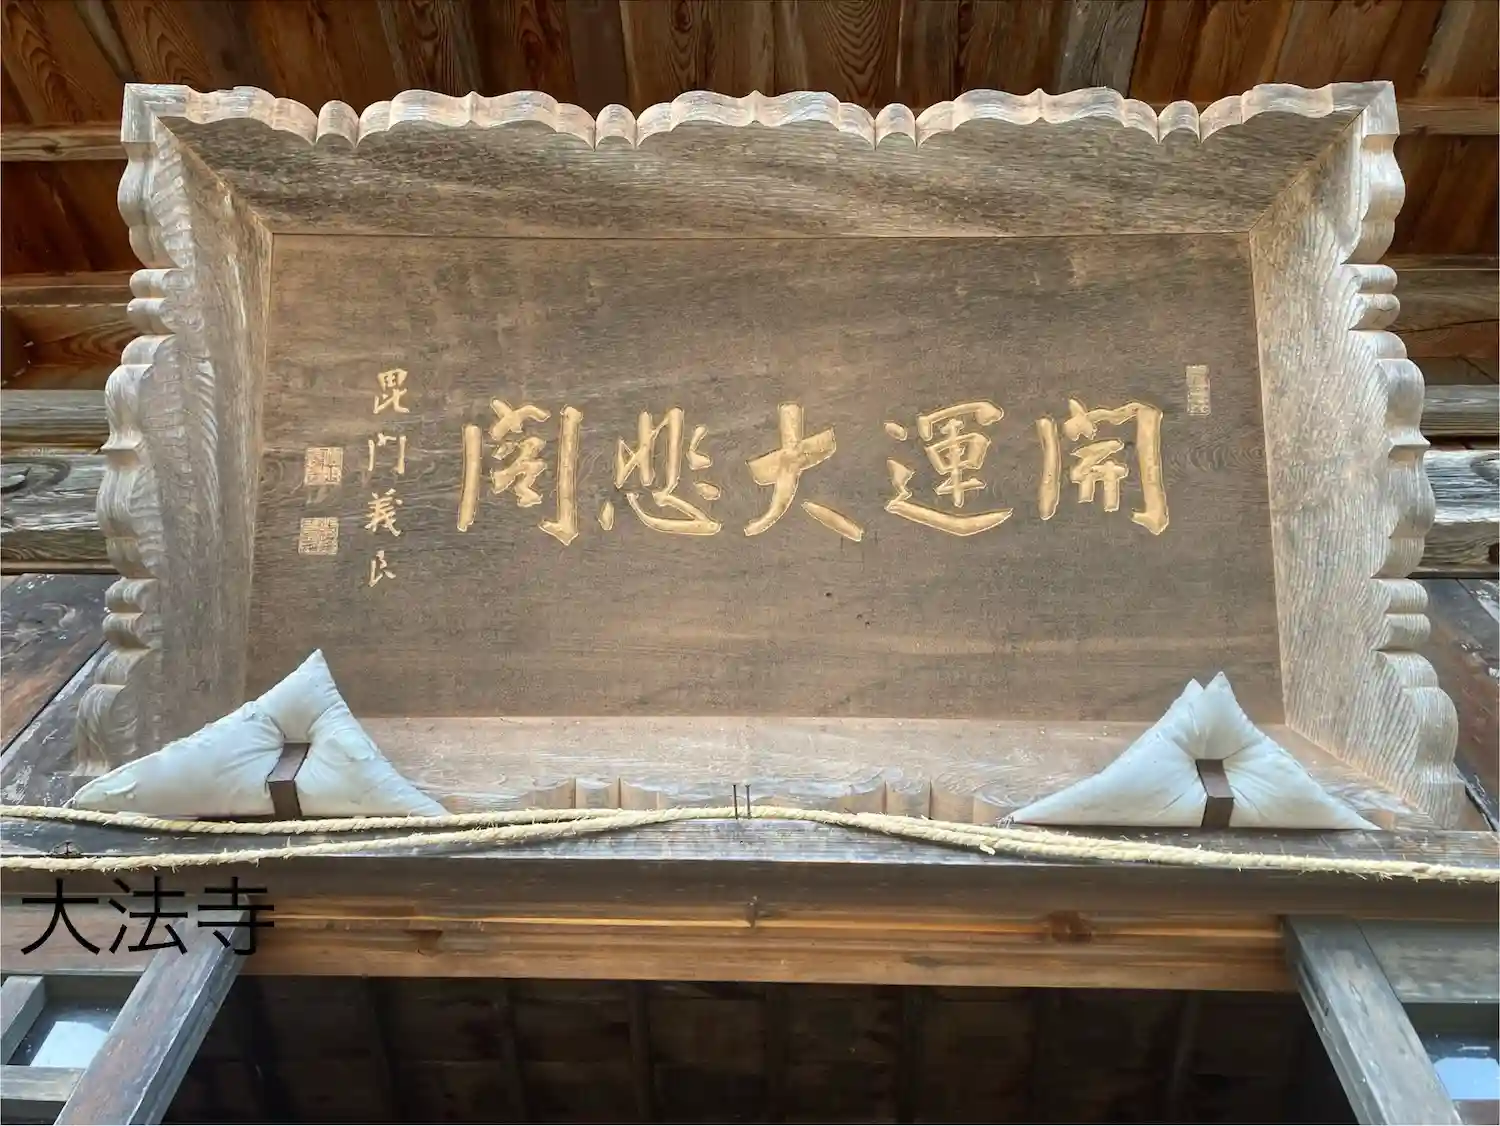 開運大悲閣
毘門義良
大法寺